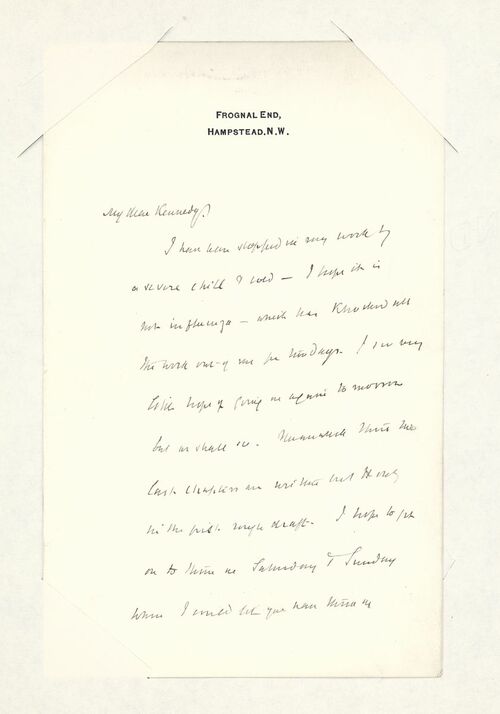 FROGNAL END,
HAMPSTEAD. N.W.
My dear Kennedy,
I have been stopped in my work by
a severe chill & cold — I hope it is
not influenza — which has knocked all
the work out of me for two days. I see very
little hope of going on again tomorrow
but we shall see. Meanwhile the two
last chapters are written but only
in the first rough draft. I hope to get
on to them on Saturday & Sunday
when I could let you have them